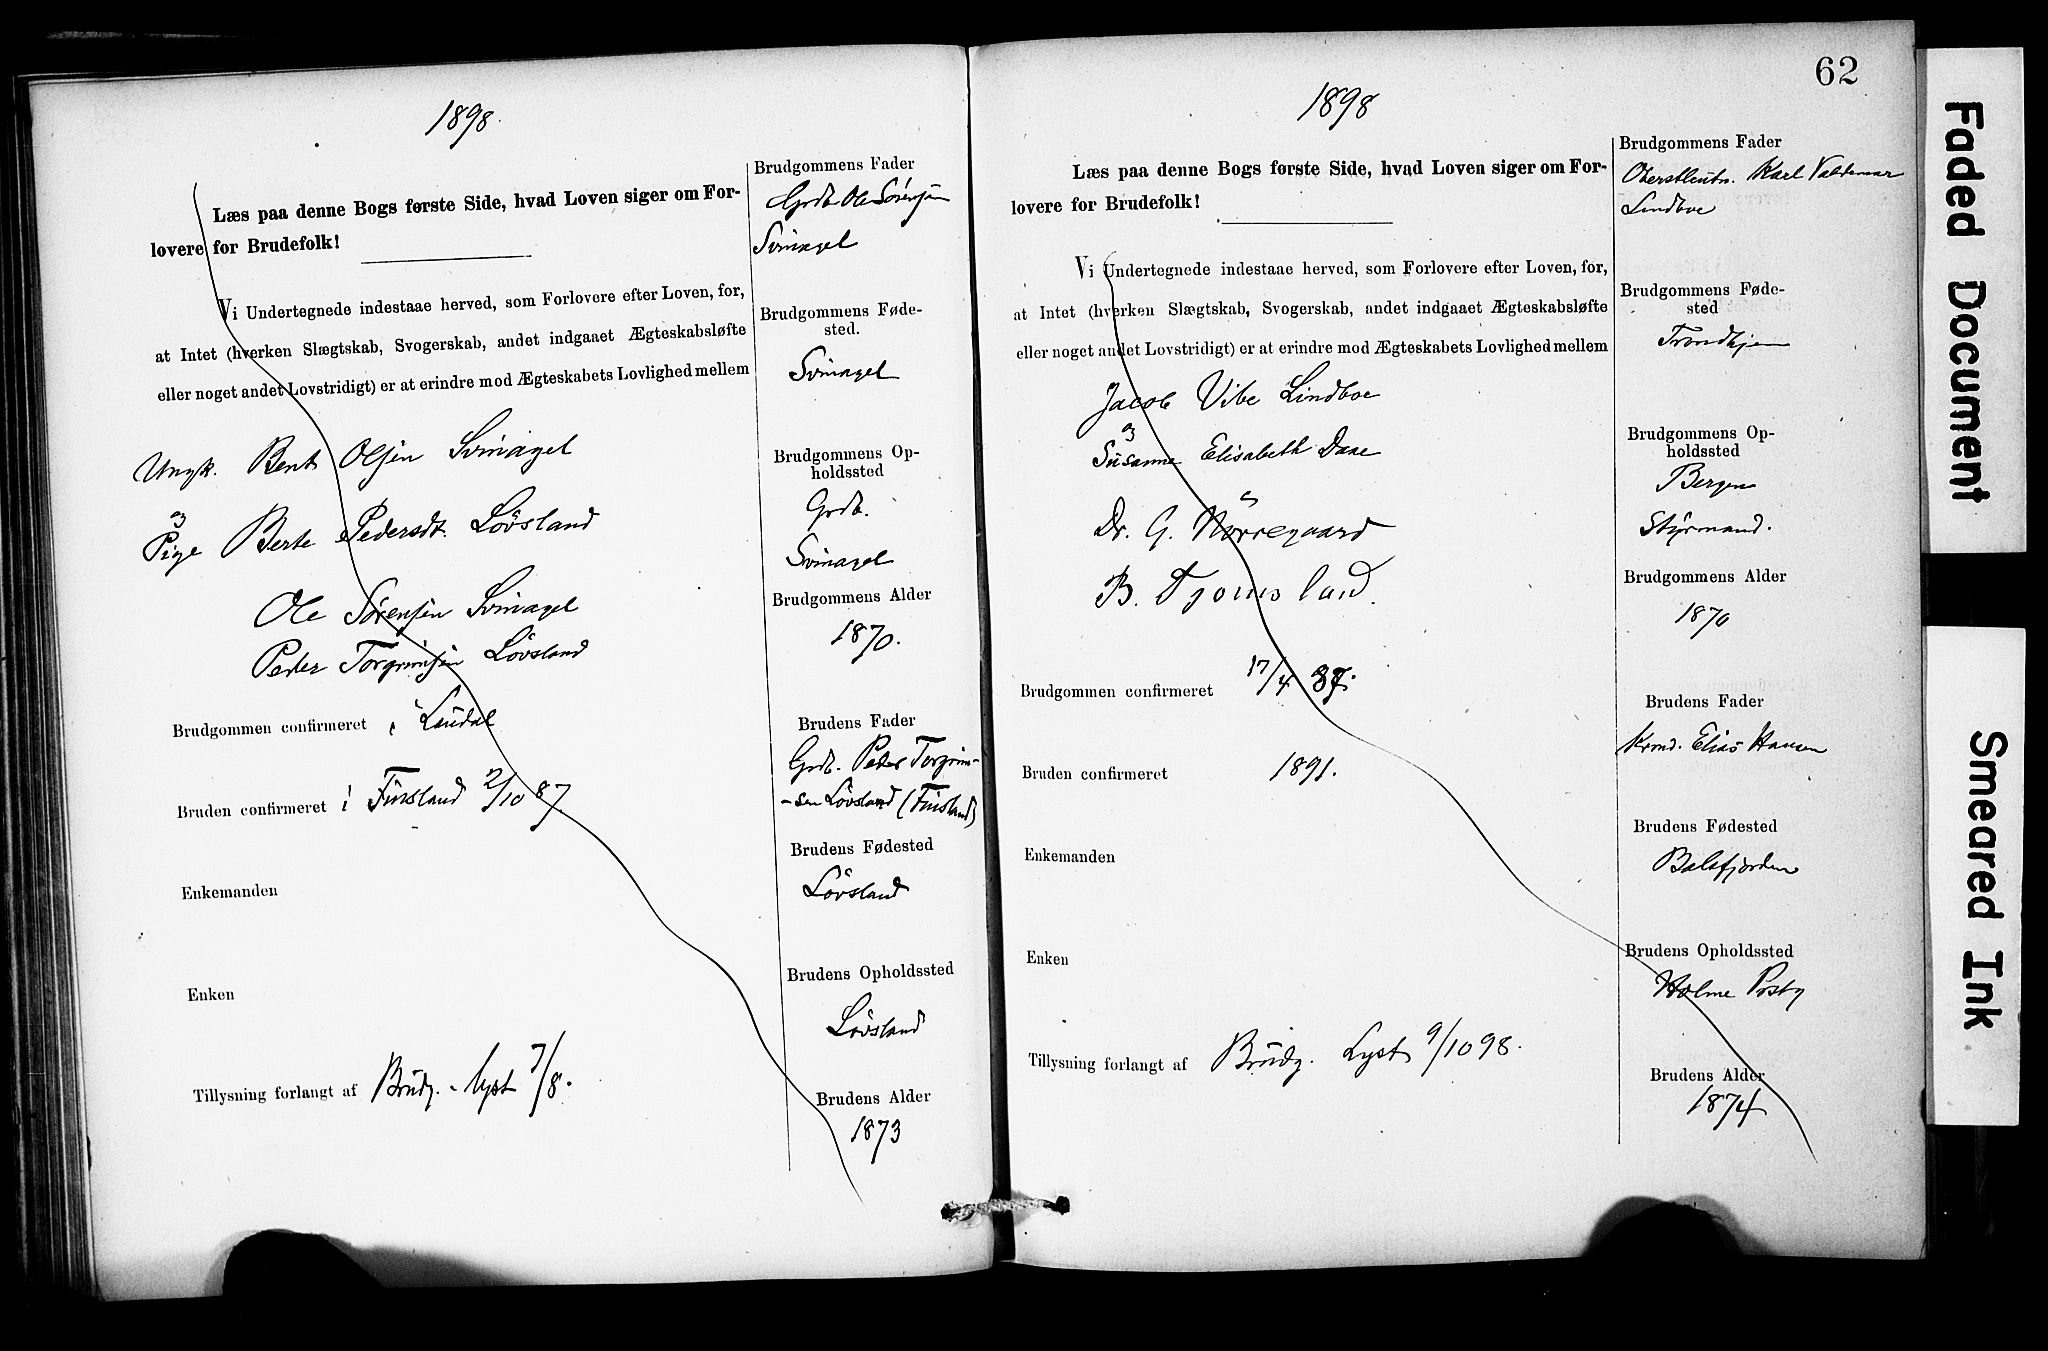 1898.
Læs paa denne Bogs første Side, hvad Loven siger om For-
lovere for Brudefolk!
Vi Undertegnede indestaae herved, som Forlovere efter Loven, for,
at Intet (hverken Slægtskab, Svogerskab, andet indgaaet Ægteskabsløfte
eller noget andet Lovstridigt) er at erindre mod Ægteskabets Lovlighed mellem
Ungk. Bent Olsen Svinagel
og
Pige Berte Pedersdt. Lövsland
Ole Sörensen Svinagel
Peder Torgrimsen Lövsland
Brudgommen confirmeret i Laudal
Bruden confirmeret i Finsland 2/10 87
Enkemanden
Enken
Tillysning forlangt af Brudg. - lyst 7/8.
Brudgommens Fader
Grdb. Ole Sörensen
Svinagel
Brudgommens Føde-
sted.
Svinagel
Brudgommens Op-
holdssted
Grdb.
Svinagel
Brudgommens Alder
1870.
Brudens Fader
Grdb. Peder Torgrim-
-sen Lövsland (Finsland)
Brudens Fødested
Lövsland
Brudens Opholdssted
Lövsland
Brudens Alder
1873
62
1898
Læs paa denne Bogs første Side, hvad Loven siger om For-
lovere for Brudefolk!
Vi Undertegnede indestaae herved, som Forlovere efter Loven, for,
at Intet (hverken Slægtskab, Svogerskab, andet indgaaet Ægteskabsløfte
eller noget andet Lovstridigt) er at erindre mod Ægteskabets Lovlighed mellem
Jacob Vibe Lindboe
og
Susanne Elisabeth Daae
Dr. G. Nörregaard
B. Tjomsland.
Brudgommen confirmeret 17/4 87.
Bruden confirmeret 1891.
Enkemanden
Enken
Tillysning forlangt af Brudg. Lyst 9/10 98.
Brudgommens Fader
Oberstleutn. Karl Valdemar
Lindboe
Brudgommens Føde-
sted
Trondhjem
Brudgommens Op-
holdssted
Bergen
Styrmand.
Brudgommens Alder
1870
Brudens Fader
Krmd. Elias Hansen
Brudens Fødested
Balsfjorden
Brudens Opholdssted
Holme Prstg
Brudens Alder
1874
Faded Document
Smeared Ink